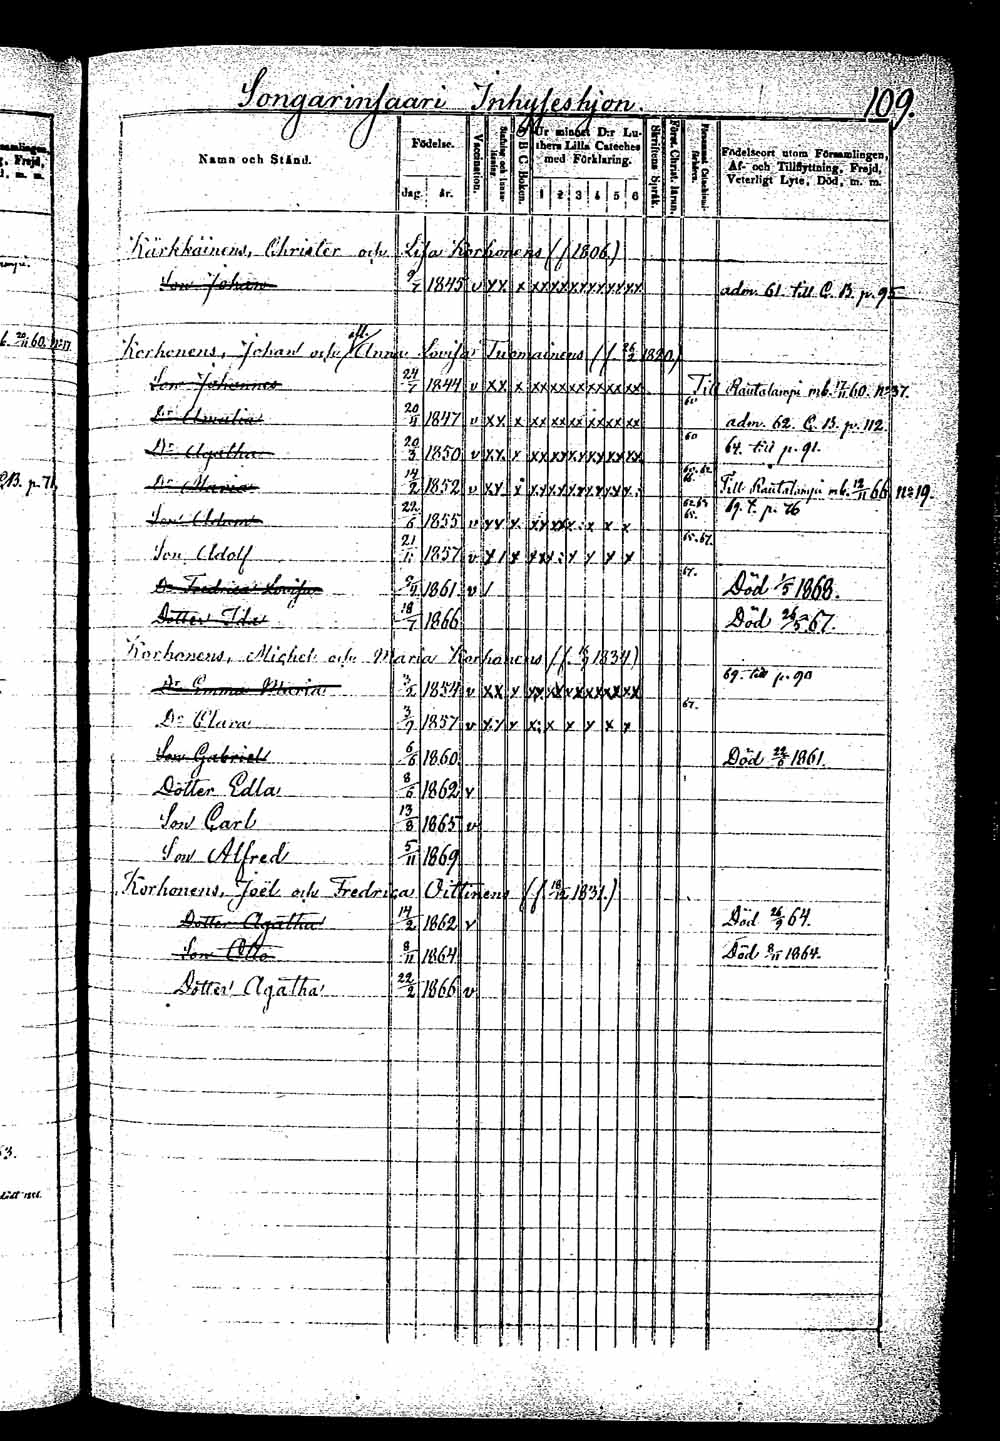 Songarinsaari Inhyseshjon.
109.
Namn och Stånd.
Födelse.
Dag.
År.
Vaccination.
A B C Boken.
Ur minnet D:r Luthers Lilla Cateches med Förklaring.
1 2 3 4 5 6
Skriftens Språk.
Först. Christ. läran.
Födelseort utom Församlingen,
Af- och Tillflyttning, Frejd,
Veterligt Lyte, Död, m. m.
Kärkkäinens, Christer och Lisa Korhonens (f 1806)
Son Johan 9/7 1845 v xx x xx xx xx xx xx xx adm. 61. till C. B. p. 95
Korhonens, Johan och afl. Anna Lovisa Tuomainens (f. 26/2 1820)
Son Johannes 24/7 1844 v xx x xx xx xx xx xx xx Till Rautalampi mb. 17/11 60. No 37.
Dr Amalia 20/4 1847 v xx x xx xx xx xx xx xx 60 adm. 62. C. B. p. 112.
Dr Agatha 20/3 1850 v xx x xx xx xx xx xx xx 60 64. till p. 91.
Dr Maria 14/2 1852 v xx x xx xx xx xx xx x. Till Rautalampi mb. 12/11 66 No 19.
Son Adam 22/6 1855 v xx x. 69. t. p. 76
Son Adolf 21/1 1857 v x/ x 65. 67.
Dr Fredrica Lovisa 1861 v / 67. Död 1/5 1868.
Dotter Ida 18/7 1866 Död 26/5 67.
Korhonens, Michel och Maria Korhonens (f. 1834)
Dr Emma Maria 1854 v xx x xx xx xx xx xx xx 69. till p. 90
Dr Clara 3/7 1857 v x x x x: x x x x x 67.
Son Gabriel 6/6 1860 Död 22/6 1861.
Dotter Edla 8/6 1862 v
Son Carl 13/8 1865 v
Son Alfred 5/11 1869
Korhonens, Joël och Fredrica Oittinens (f 18/12 1831.)
Dotter Agatha 14/2 1862 v Död 26/9 64.
Son Otto 8/11 1864 Död 8/11 1864.
Dotter Agatha 22/2 1866 v